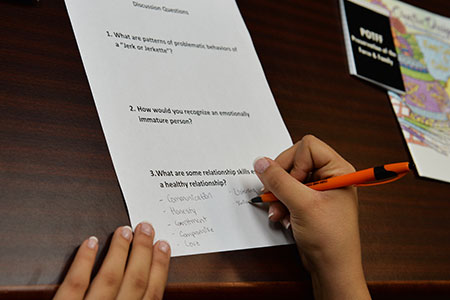 Discussion Questions
1. What are patterns of problematic behaviors of
a "Jerk or Jerkette"?
2. How would you recognize an emotionally
immature person?
3. What are some relationship skills
a healthy relationship?
- Communication
- Honesty
- Commitment
- Compromise
- Love
POTFF
Preservation of the
Force & Family